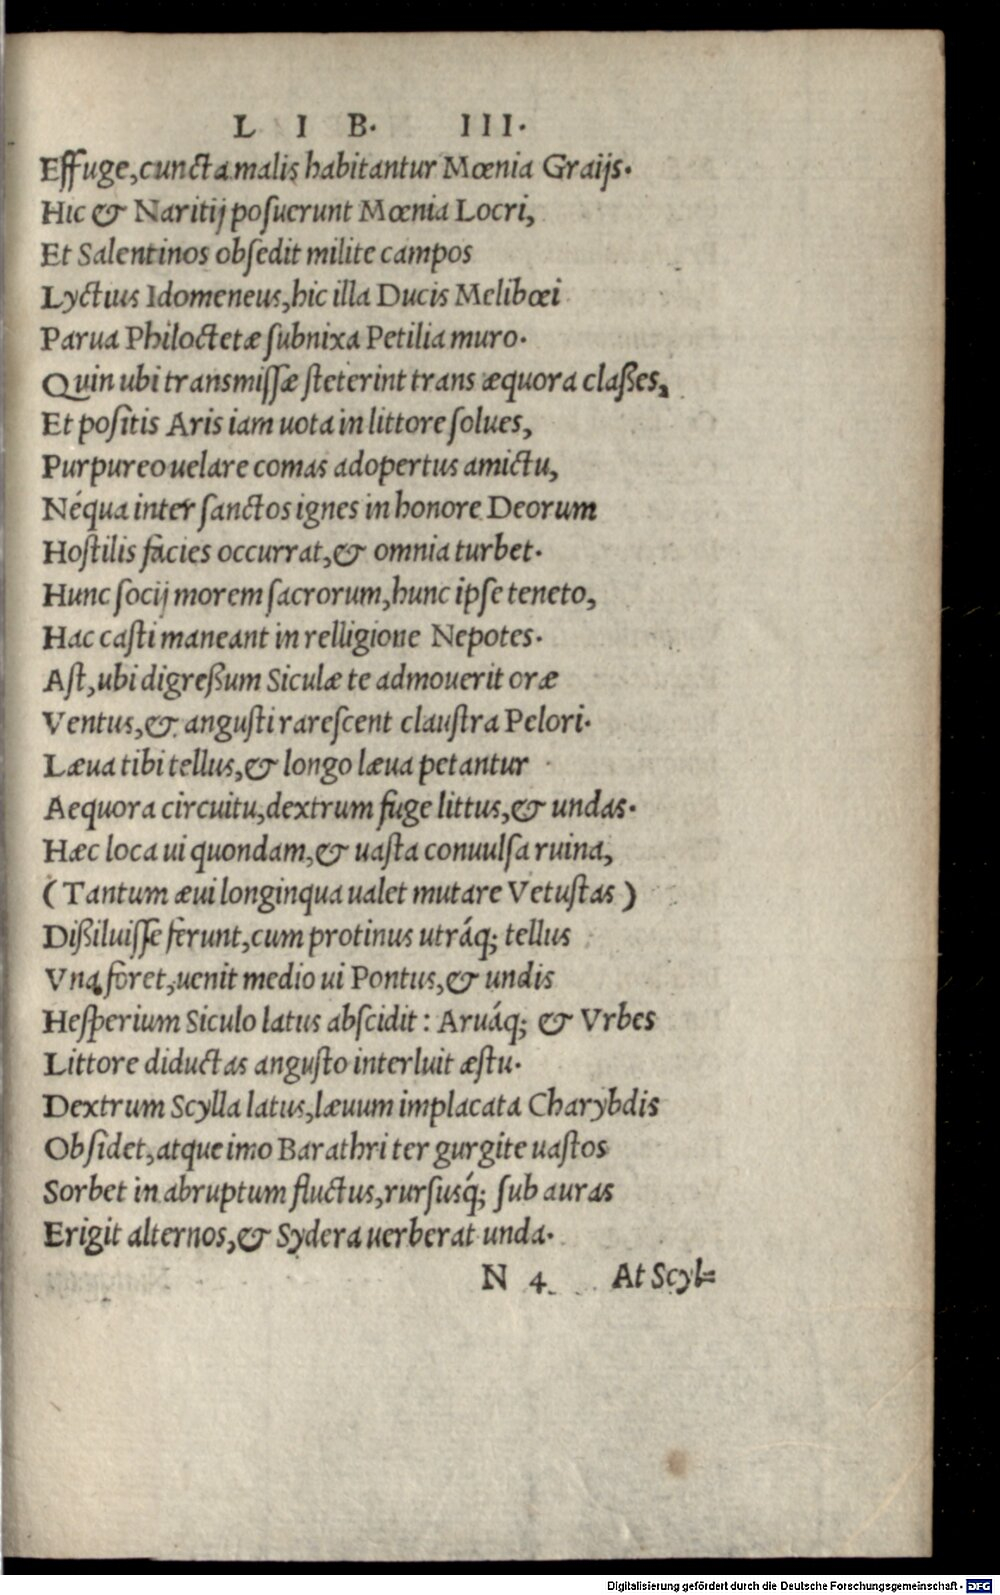 L I B. III.
Effuge, cuncta malis habitantur Mœnia Graijs.
Hic & Naritij posuerunt Mœnia Locri,
Et Salentinos obsedit milite campos
Lyctius Idomeneus, hic illa Ducis Melibœi
Parua Philoctetæ subnixa Petilia muro.
Quin ubi transmissæ steterint trans æquora claßes,
Et positis Aris iam uota in littore solues,
Purpureo uelare comas adopertus amictu,
Néqua inter sanctos ignes in honore Deorum
Hostilis facies occurrat, & omnia turbet.
Hunc socij morem sacrorum, hunc ipse teneto,
Hac casti maneant in relligione Nepotes.
Ast, ubi digreßum Siculæ te admouerit oræ
Ventus, & angusti rarescent claustra Pelori.
Læua tibi tellus, & longo læua petantur
Aequora circuitu, dextrum fuge littus, & undas.
Hæc loca ui quondam, & uasta conuulsa ruina,
(Tantum æui longinqua ualet mutare Vetustas)
Dißiluisse ferunt, cum protinus utráq; tellus
Vna foret, uenit medio ui Pontus, & undis
Hesperium Siculo latus abscidit: Aruáq; & Vrbes
Littore diductas angusto interluit æstu.
Dextrum Scylla latus, læuum implacata Charybdis
Obsidet, atque imo Barathri ter gurgite uastos
Sorbet in abruptum fluctus, rursusq́; sub auras
Erigit alternos, & Sydera uerberat unda.
N 4 At Scyl=
Digitalisierung gefördert durch die Deutsche Forschungsgemeinschaft - DFG